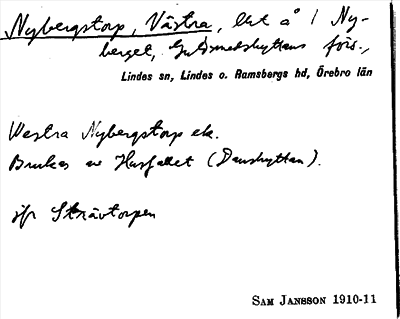 Nybergstorp, Västra, lht å 1 Ny-
berget, Guldsmedshyttans förs.,
Lindes sn, Lindes o. Ramsbergs hd, Örebro län
Westra Nybergstorp ek.
Brukas av Husfallet (Danshyttan).
jfr Strävtorpen
SAM JANSSON 1910-11